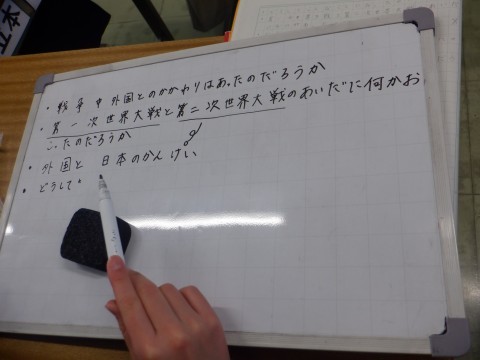 ・戦争中外国とのかかわりはあったのだろうか
・第一次世界大戦と第二次世界大戦のあいだに何かお
こったのだろうか
・外国と日本のかんけい
・どうして